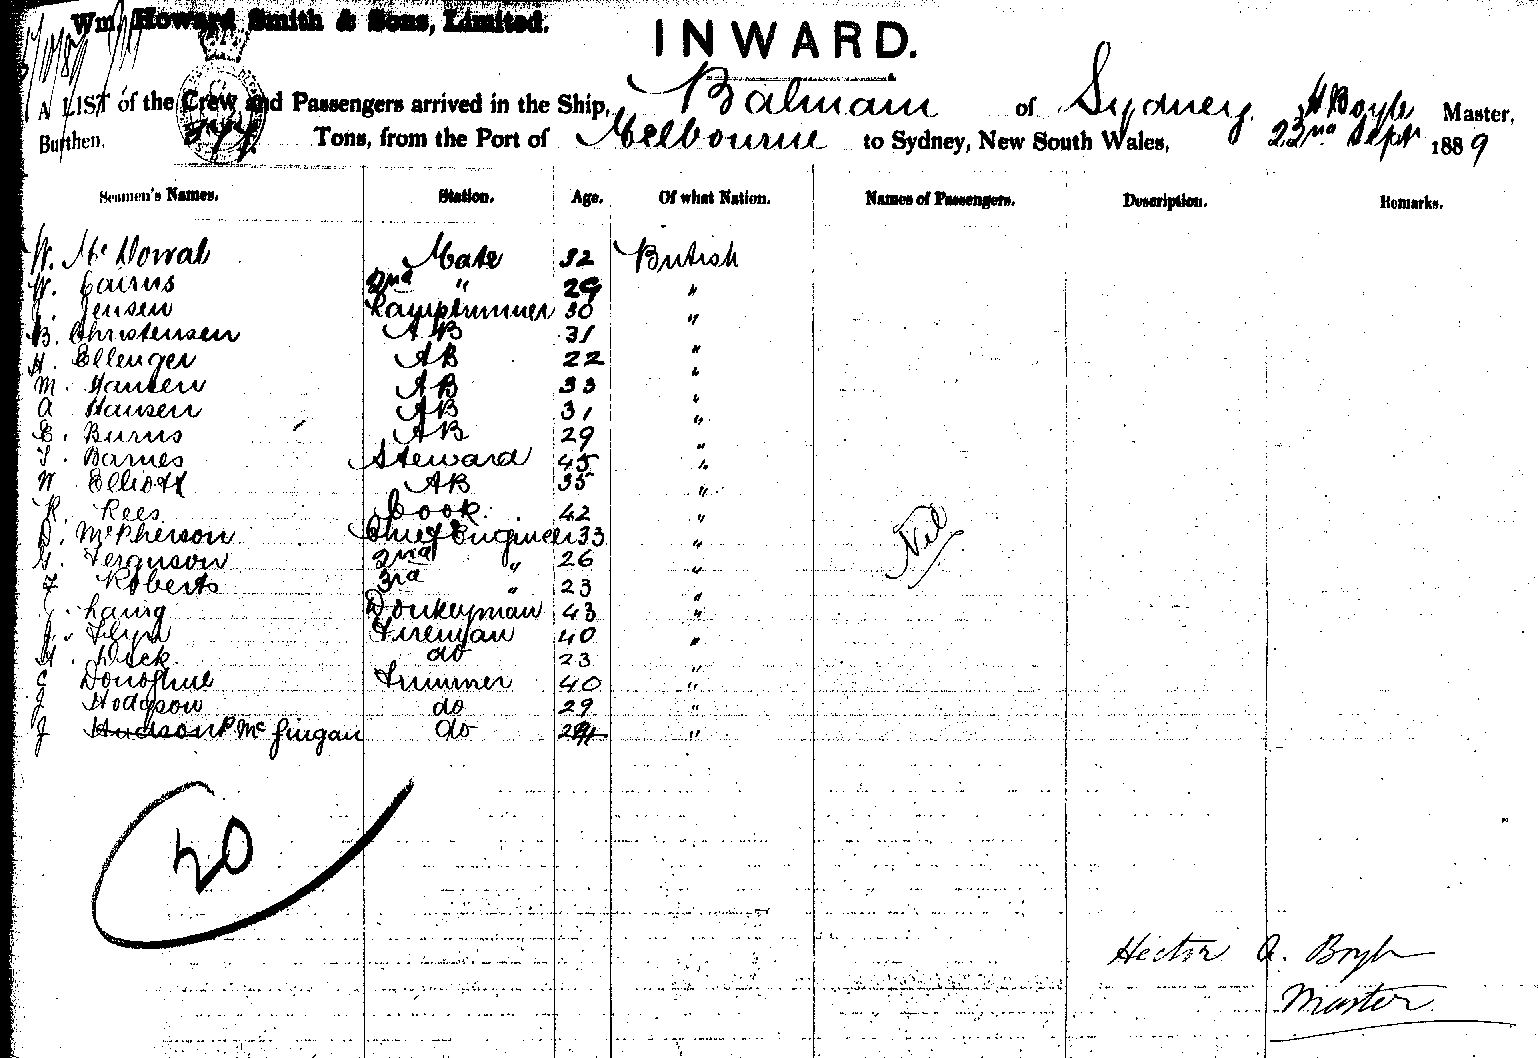 Wm. Howard Smith & Sons, Limited.
INWARD.
A LIST of the Crew and Passengers arrived in the Ship, Balmain of Sydney. H Boyle Master,
Burthen, Tons, from the Port of Melbourne to Sydney, New South Wales, 23rd Sept 1889
Seamen's Names. Station. Age. Of what Nation. Names of Passengers. Description. Remarks.
W. Mc Dowal Mate 32 British
W. Cairns 2nd " 29 "
Jensen Lamptrimmer 30 "
B. Christensen AB 31 "
H. Ellenger AB 22 "
M. Hansen AB 33 "
A Hansen AB 31 "
E. Burns AB 29 "
T. Barnes Steward 45 "
W Elliott AB 35 "
R. Rees Cook 42 "
D. McPherson Chief Engineer 33 "
G. Ferguson 2nd " 26 "
F Roberts 3rd " 23 "
Laing Donkeyman 43 "
J. Flyn Fireman 40 "
H. Dick do 23 "
C Donoghue Trimmer 40 "
J Hodgson do 29 "
J Hudson P Mc Gingan do "
Nil
20
Hector A. Boyle
Master